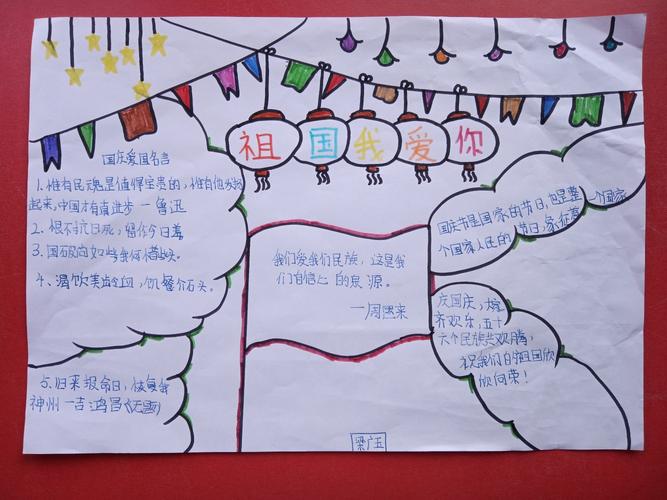 祖国我爱你
国庆爱国名言
1.惟有民魂是值得宝贵的,惟有他发扬
起来,中国才有真进步一鲁迅
2.恨不抗日死,留作今日羞
3.国破尚如此我何惜此头。
4、渴饮美龄血,饥餐介石头。
5.归来报命日,恢复我
神州一吉鸿昌《无题》
我们爱我们民族,这是我
们自信心的泉源。
一周恩来
国庆节是国家的节日,也是整一个国家
个国家人民的节日,象征着
庆国庆,
齐欢乐,五十
六个民族共欢腾,
祝我们自祖国欣
欣向荣!
梁广五